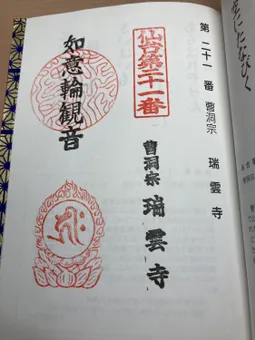 せこしたなびく
第二十一番 曹洞宗 瑞雲寺
仙台第二十一番
如意輪観音
曹洞宗 瑞雲寺